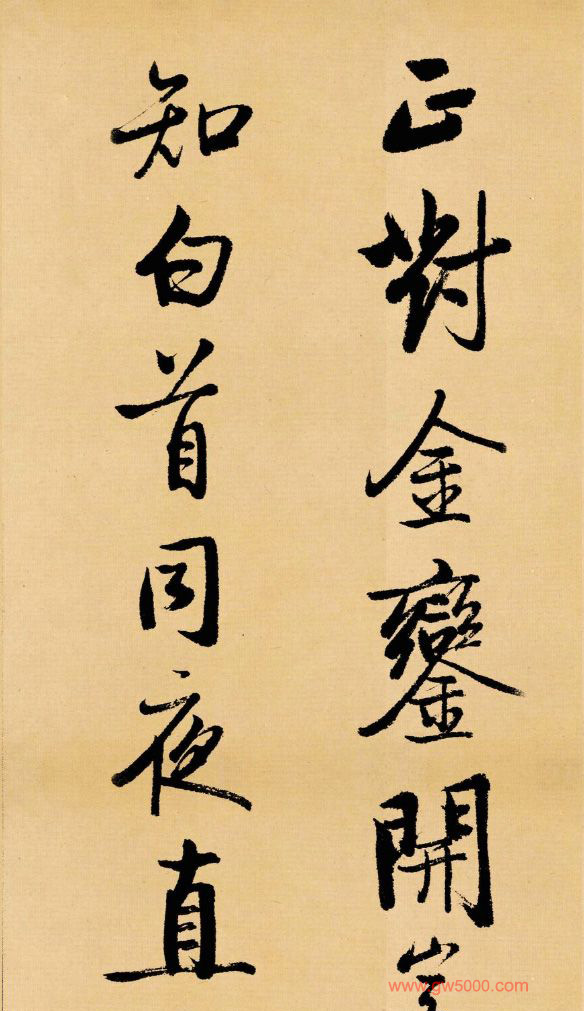 正對金鑾開
知白首同夜直
www.gw5000.com